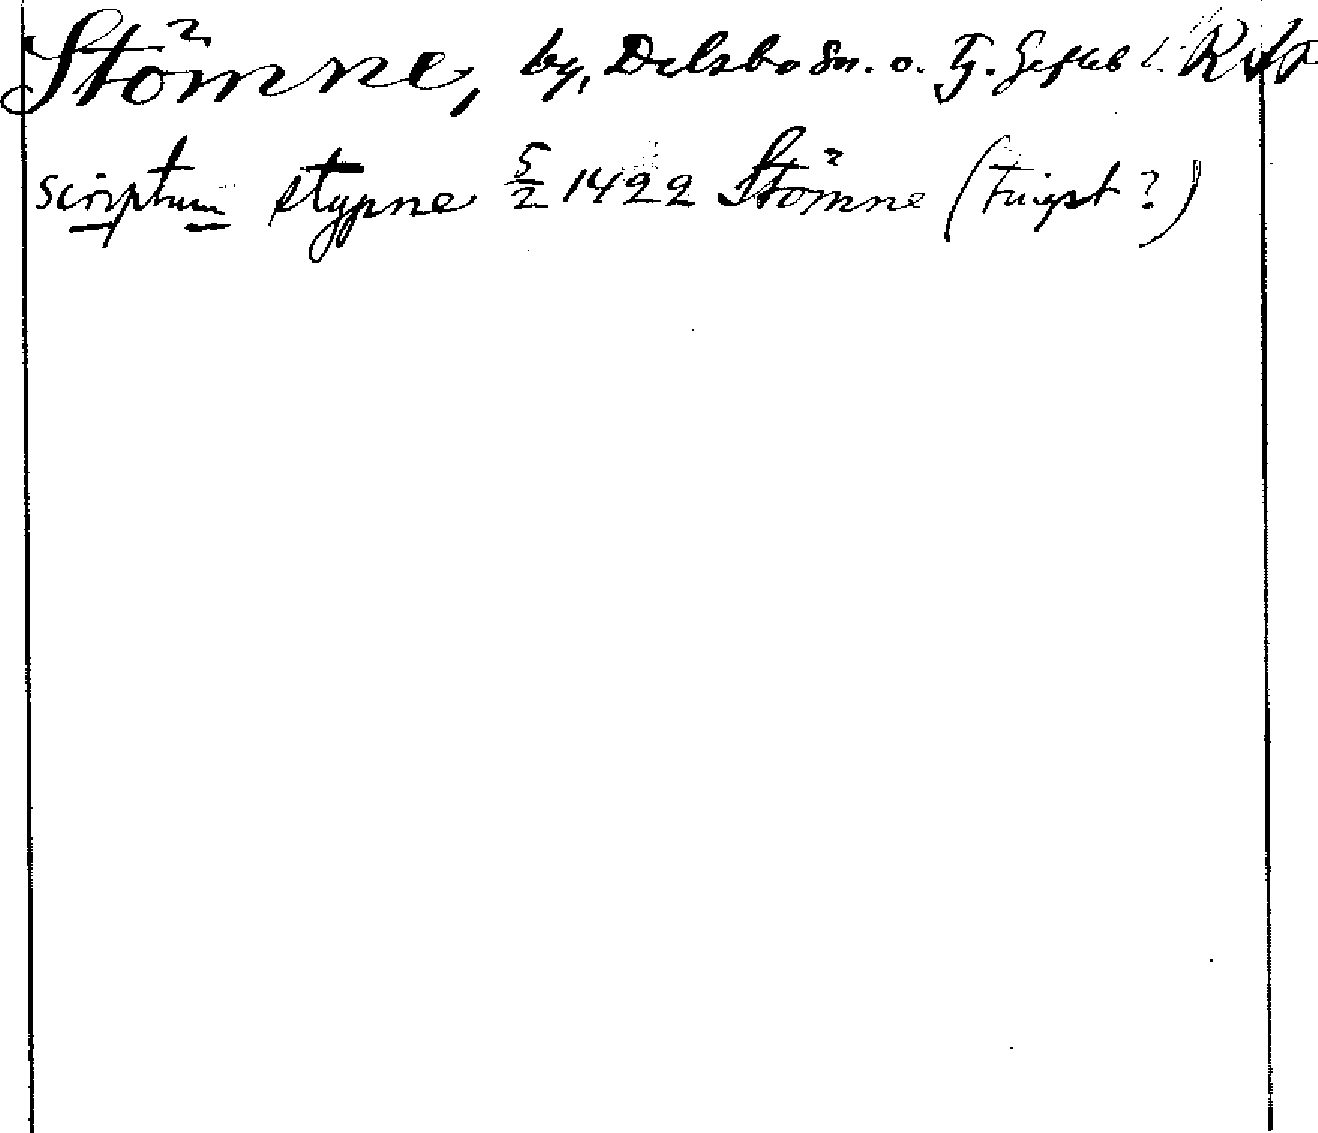 Stömne, by, Delsbo Sn. o. Tg. Gefleb l. RAp
scriptum stypne 5/2 1422 Stömne (tingst?)